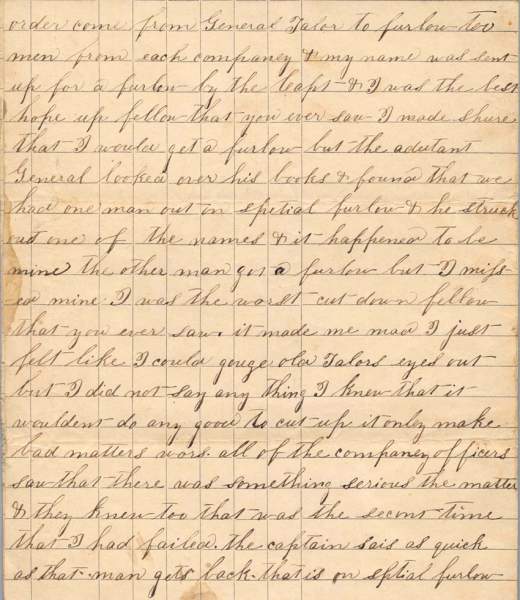 order come from General Talor to furlow too
men from each companey & my name was sent
up for a furlow by the Capt & I was the best
hope up fellow that you ever saw I made shure
that I would get a furlow but the adutant
General looked over his books & found that we
had one man out on spetial furlow & he struck
out one of the names & it happened to be
mine the other man got a furlow but I miss
ed mine I was the worst cut down fellow
that you ever saw. it made me mad I just
felt like I could gouge old Talors eyes out
but I did not say any thing I knew that it
wouldent do any good to cut up it only make
bad matters wors. all of the companey officers
saw that there was something serious the matter
& they knew too that was the secont time
that I had failed. the captain sais as quick
as that man gets back that is on sptial furlow